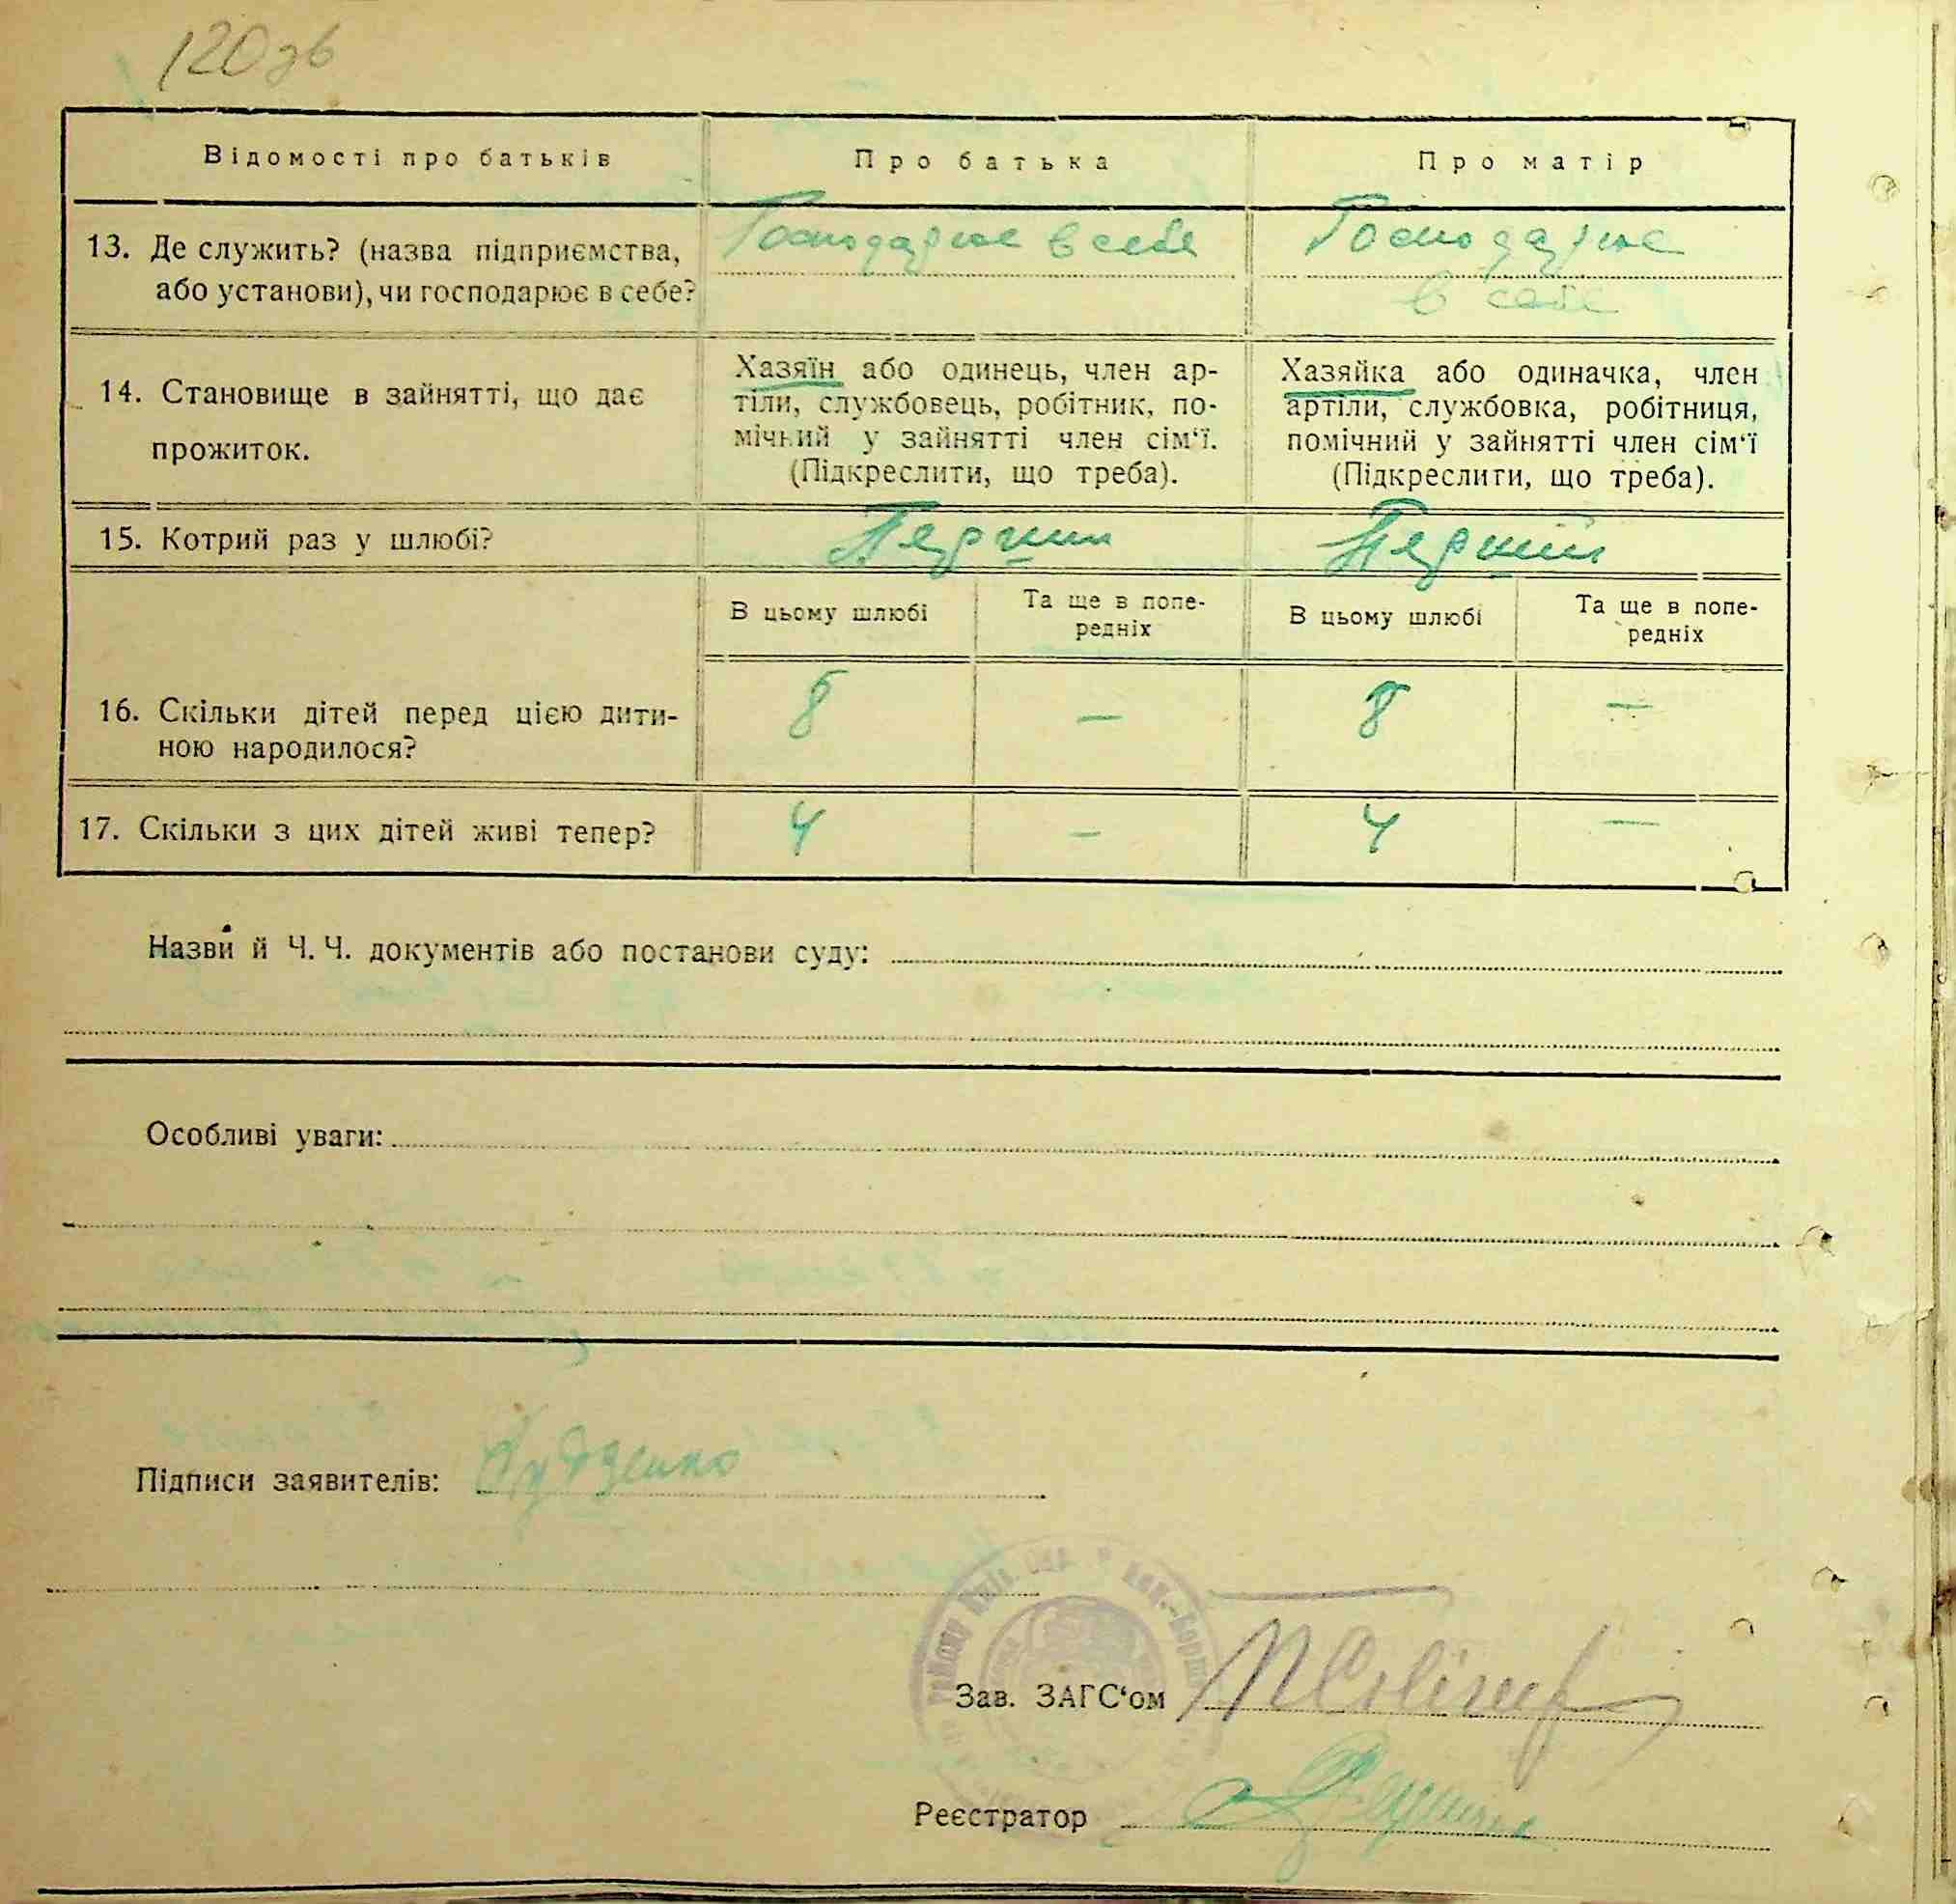 120 зв
Відомості про батьків
Про батька
Про матір
13. Де служить? (назва підприємства,
або установи), чи господарює в себе?
Господарює в себе
Господарює
в себе
14. Становище в зайнятті, що дає
прожиток.
Хазяїн або одинець, член ар-
тіли, службовець, робітник, по-
мічний у зайнятті член сім‘ї.
(Підкреслити, що треба).
Хазяйка або одиначка, член
артіли, службовка, робітниця,
помічний у зайнятті член сім‘ї
(Підкреслити, що треба).
15. Котрий раз у шлюбі?
Перший
Перший
В цьому шлюбі
Та ще в попе-
редніх
В цьому шлюбі
Та ще в попе-
редніх
16. Скільки дітей перед цією дити-
ною народилося?
8
—
8
—
17. Скільки з цих дітей живі тепер?
4
—
4
—
Назви й Ч. Ч. документів або постанови суду:
Особливі уваги:
Підписи заявителів:
Зав. ЗАГС‘ом
Реєстратор